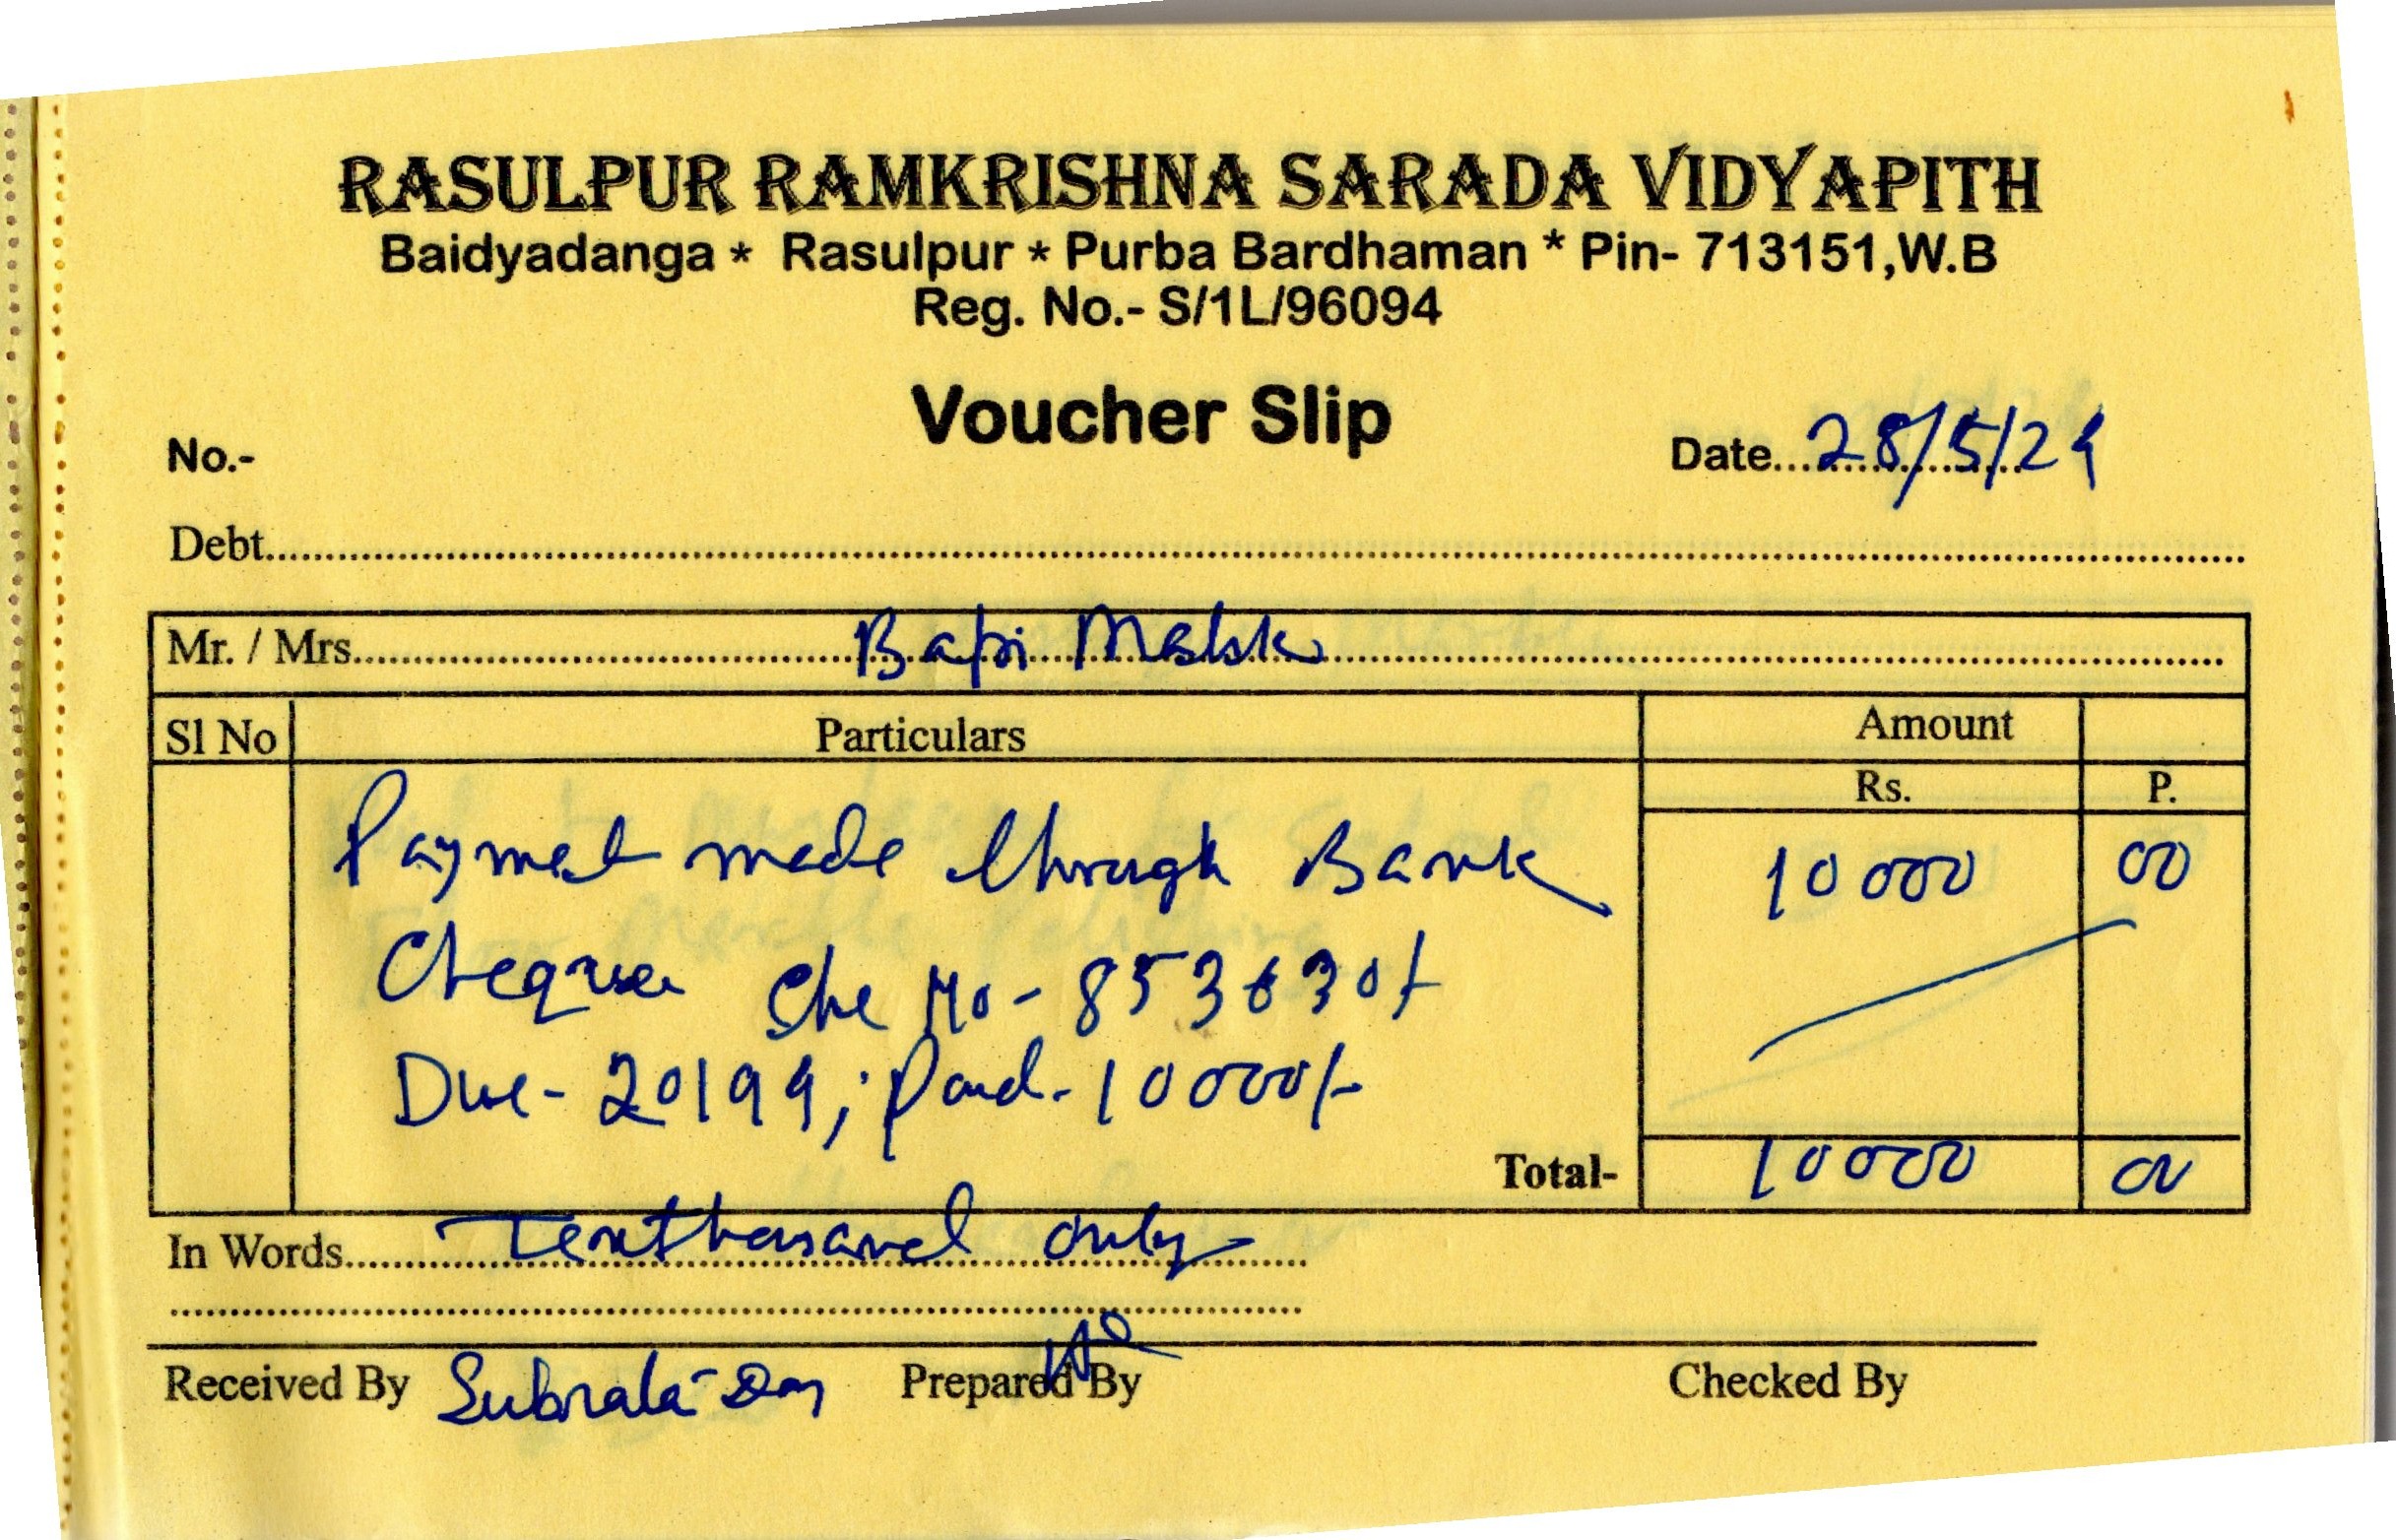 RASULPUR RAMKRISHNA SARADA VIDYAPITH
Baidyadanga * Rasulpur * Purba Bardhaman * Pin- 713151,W.B
Reg. No.- S/1L/96094
Voucher Slip
No.- Date...28/5/24
Debt
Mr. / Mrs. Bapi
Sl No Particulars Amount
Rs. P.
Payment made through Bank 10000 00
Cheque Che No- 853630/-
Due- 20199; Paid- 10000/-
Total- 10000 00
In Words Tenthousand only
Received By Subrata Prepared By Checked By